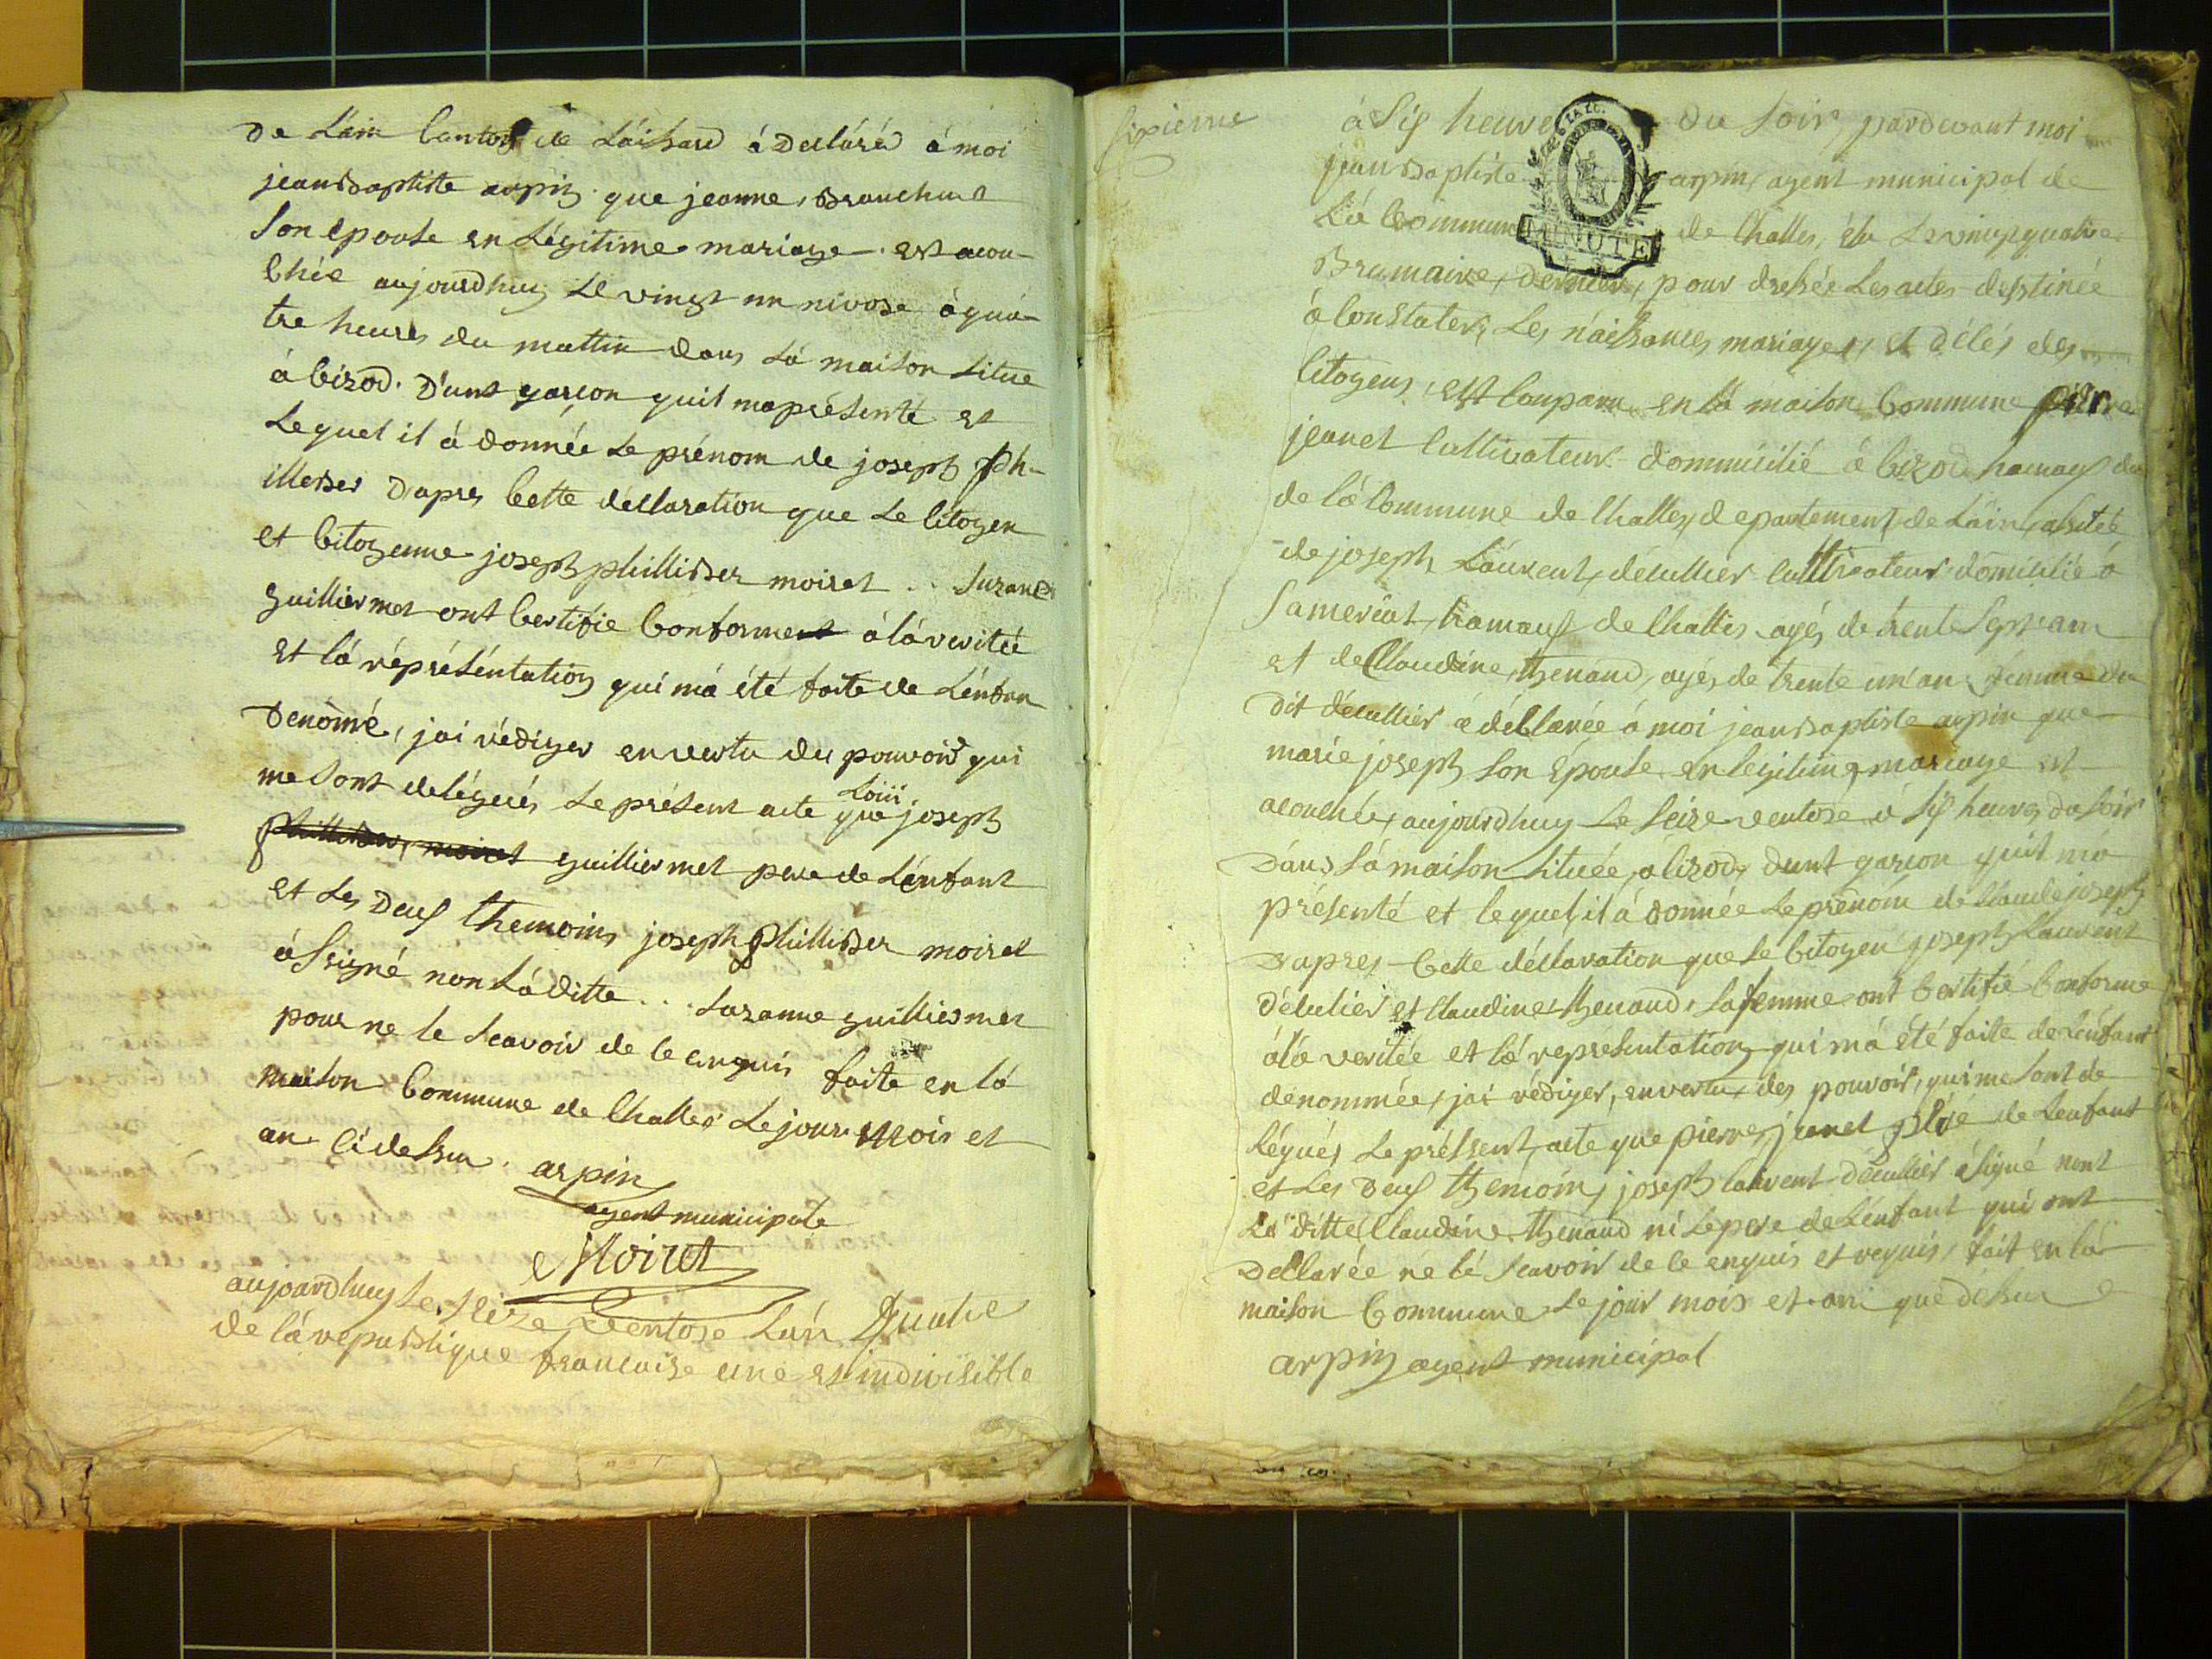 De Láin Canton de Láissard á Declárér á moi
jean Baptiste arpin que jeanne
Son epouse en Légitime mariage est acou-
chée aujourdhuy Le vingt un nivose á quá-
tre heures du mattin dans Lá maison située
á Cizod. D'unt garcon quil maprésenté et
Lequel il á donnée Le prénom de joseph Ph-
illiber Dapres Cette déclaration que Le Citoyen
et Citoyenne joseph phillisser moiret .. Suzane
guilliermet ont Certifie Conforment álá veritée
et lá réprésentation qui má été faite de Lénfan
Denômé, jai rédiger en vertu des pouvoir qui
me Sont delégués Le présent acte que joseph
Loüi
Phillisser, moiret guilliermet pere de Lénfant
et Les Deuf themoins joseph Phillisser moiret
á Seigné non Láditte .. Suzanne guilliermet
pour ne le Scavoir de le enquis faite en lá
maison Commune de Challes Le jour mois et
an Cidessu. arpin
agent municipale
Moiret
aujourdhuy Le Seize Ventose Lán Quatre
de lá repusslique francaise une et indivisible
Sixieme
á Sif heure du Soir, pardevant moi
jean Baptiste arpin, agent municipal de
Lá Commune de Challes, élu Le vingt quatre
MINUTE
Brumaire, Dernier, pour dressée Les actes destinée
á Constater, Les náissances mariages, et délés des
Citoyens, est Conparu en lá maison Commune pierre
jeanet Cultivateur dommicilié á Cizod hamaux du
de lá Commune de Challes, departement de Láin, assisté
de joseph Láurent, décullier Culttivateur domicilié á
Samériat, hamauf de Challes agés de trente Sept an
et de Claudine, thenand, agés de trente un an femme du
Dit décullier á déclarée á moi jean Baptiste arpin que
marie joseph Son épouse en legitime mariage est
acouchée, aujourdhuy Le Seize ventose á Sif heures du Soir
Dáns Sá maison Située, á Cizod, dunt garcon quil má
présenté et lequel, il á donnée Le prénom de Claude joseph
Dapres Cette déclaration que Le Citoyen joseph Laurent
déculier et Claudine thenand, Sa femme ont Certifié Conforme
álá veritée et lá représentation qui má été faite de Lénfant
denommée, jai rédiger, en vertu, des pouvoir, qui me Sont dé
légués Le présent, acte que pierre jeanet pére de Lenfant
et Les Deuf themoin, joseph laurent décullier á Signé nont
Lá ditte Claudine thenand ni Le pere de Lénfant qui ont
Declarée né lé Scavoir de le enquis et requis, fait en lá
maison Commune Le jour mois et an que dessu
arpin agent municipal